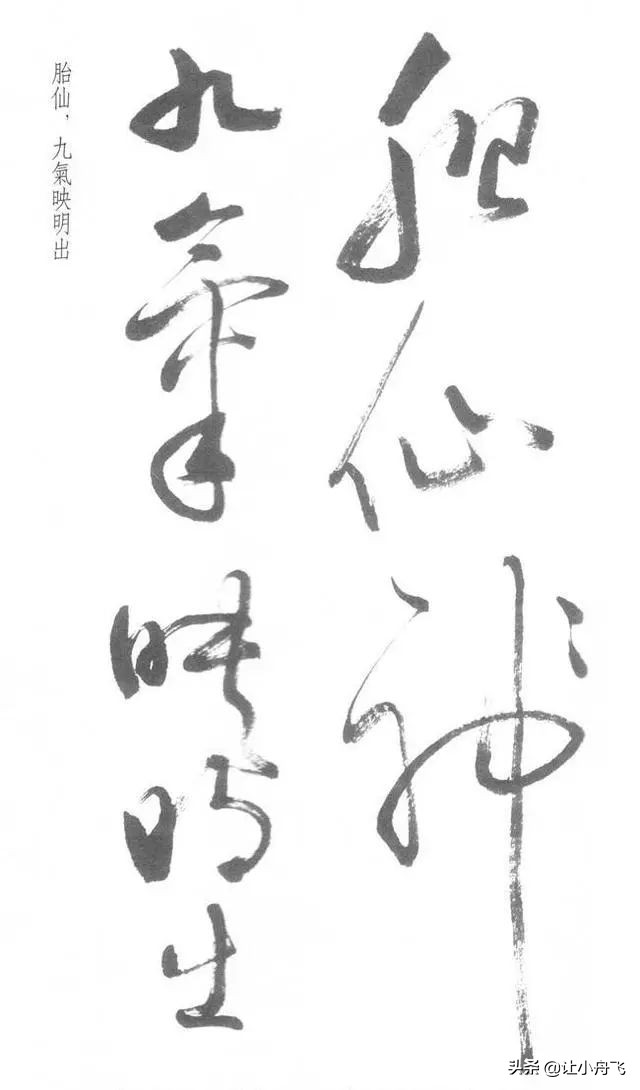 胎仙神
九氣映明出
胎仙，九氣映明出
头条 @让小舟飞